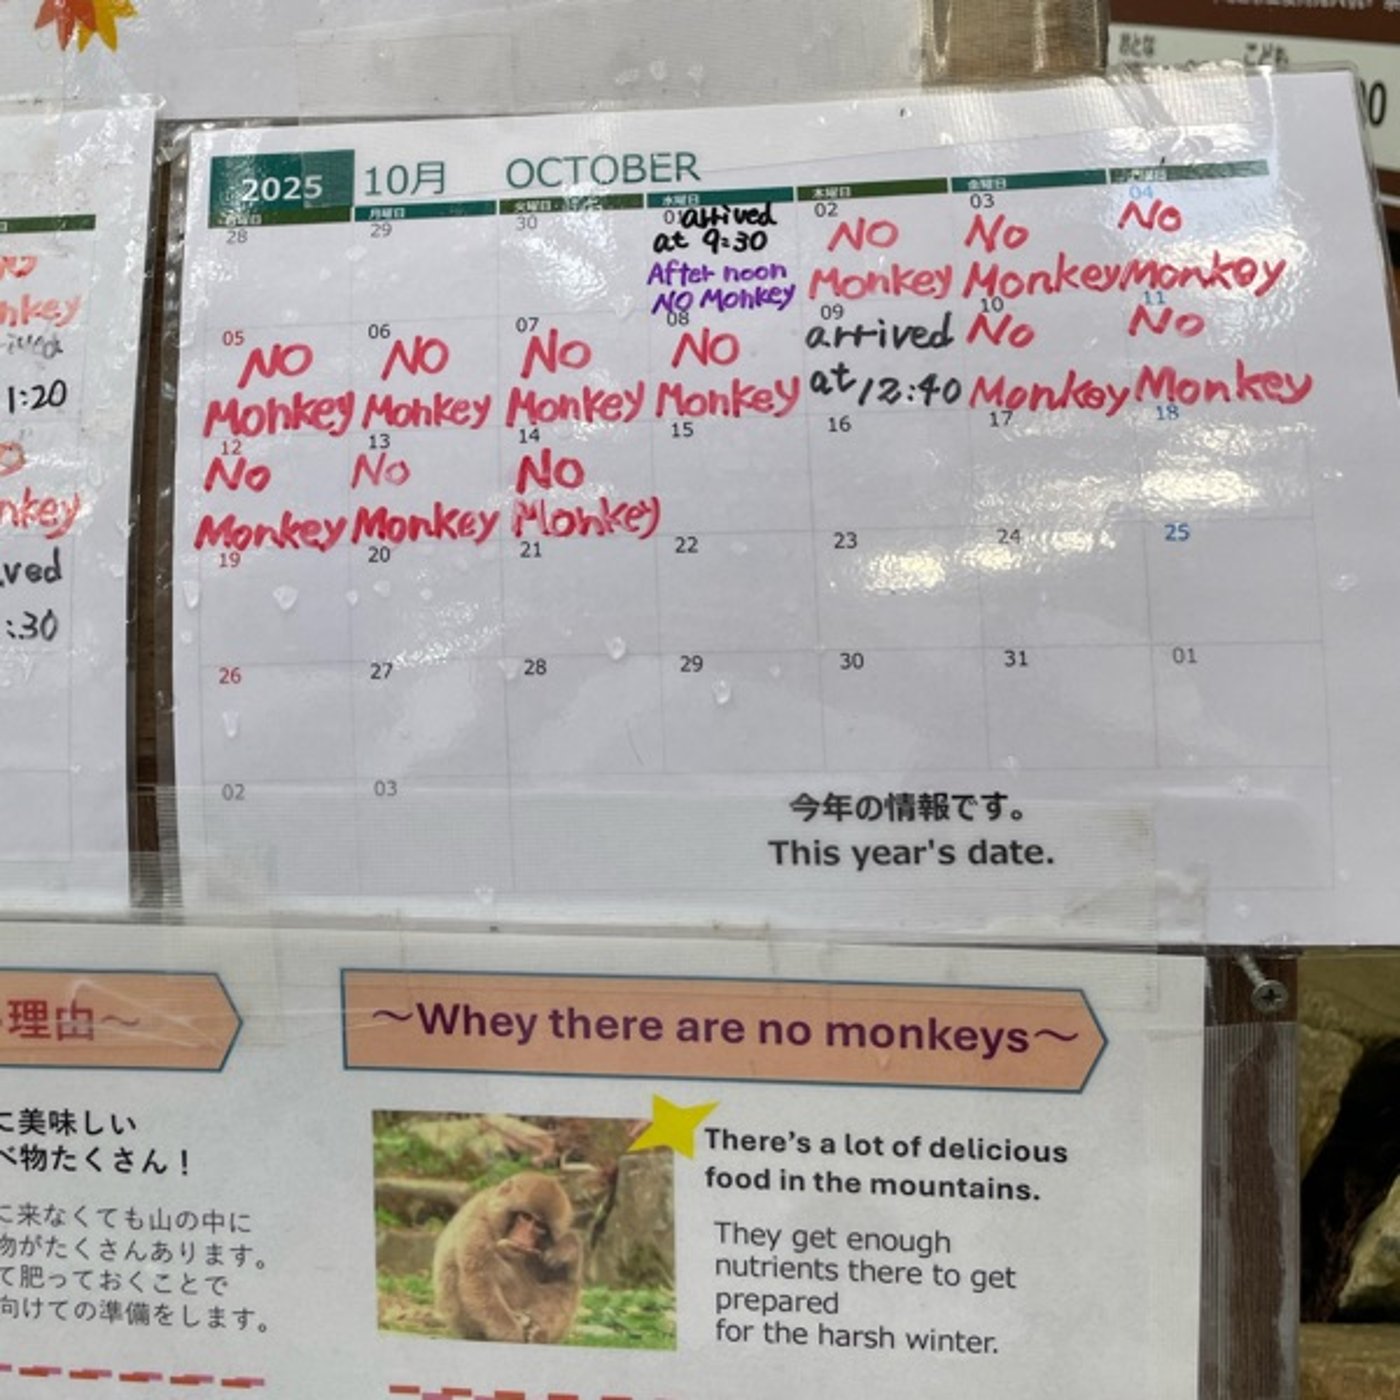 おとな
こども
2025 10月 OCTOBER
日曜日 月曜日 火曜日 水曜日 木曜日 金曜日 土曜日
28 29 30 01 02 03 04
arrived
at 9:30
After noon
NO Monkey
NO
Monkey
No
Monkey
No
Monkey
05 06 07 08 09 10 11
NO
Monkey
NO
Monkey
No
Monkey
NO
Monkey
arrived
at 12:40
No
Monkey
No
Monkey
12 13 14 15 16 17 18
No
Monkey
No
Monkey
No
Monkey
19 20 21 22 23 24 25
26 27 28 29 30 31 01
02 03
今年の情報です。
This year's date.
1:20
:30
理由～
に美味しい
べ物たくさん！
に来なくても山の中に
物がたくさんあります。
て肥っておくことで
向けての準備をします。
～Whey there are no monkeys～
There's a lot of delicious
food in the mountains.
They get enough
nutrients there to get
prepared
for the harsh winter.